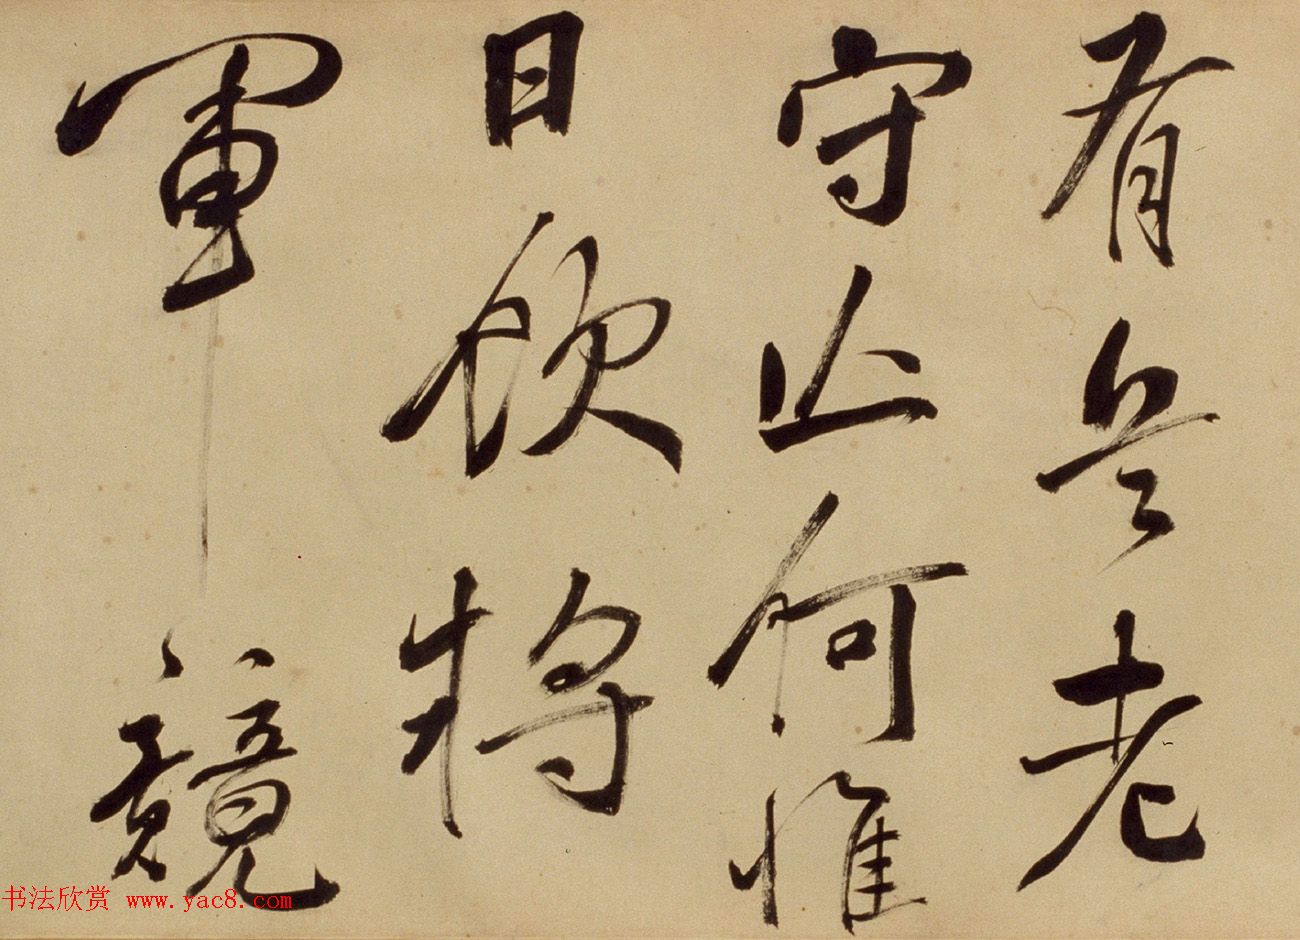 有兵老
守亡何惟
日飲將
軍競
书法欣赏 www.yac8.com